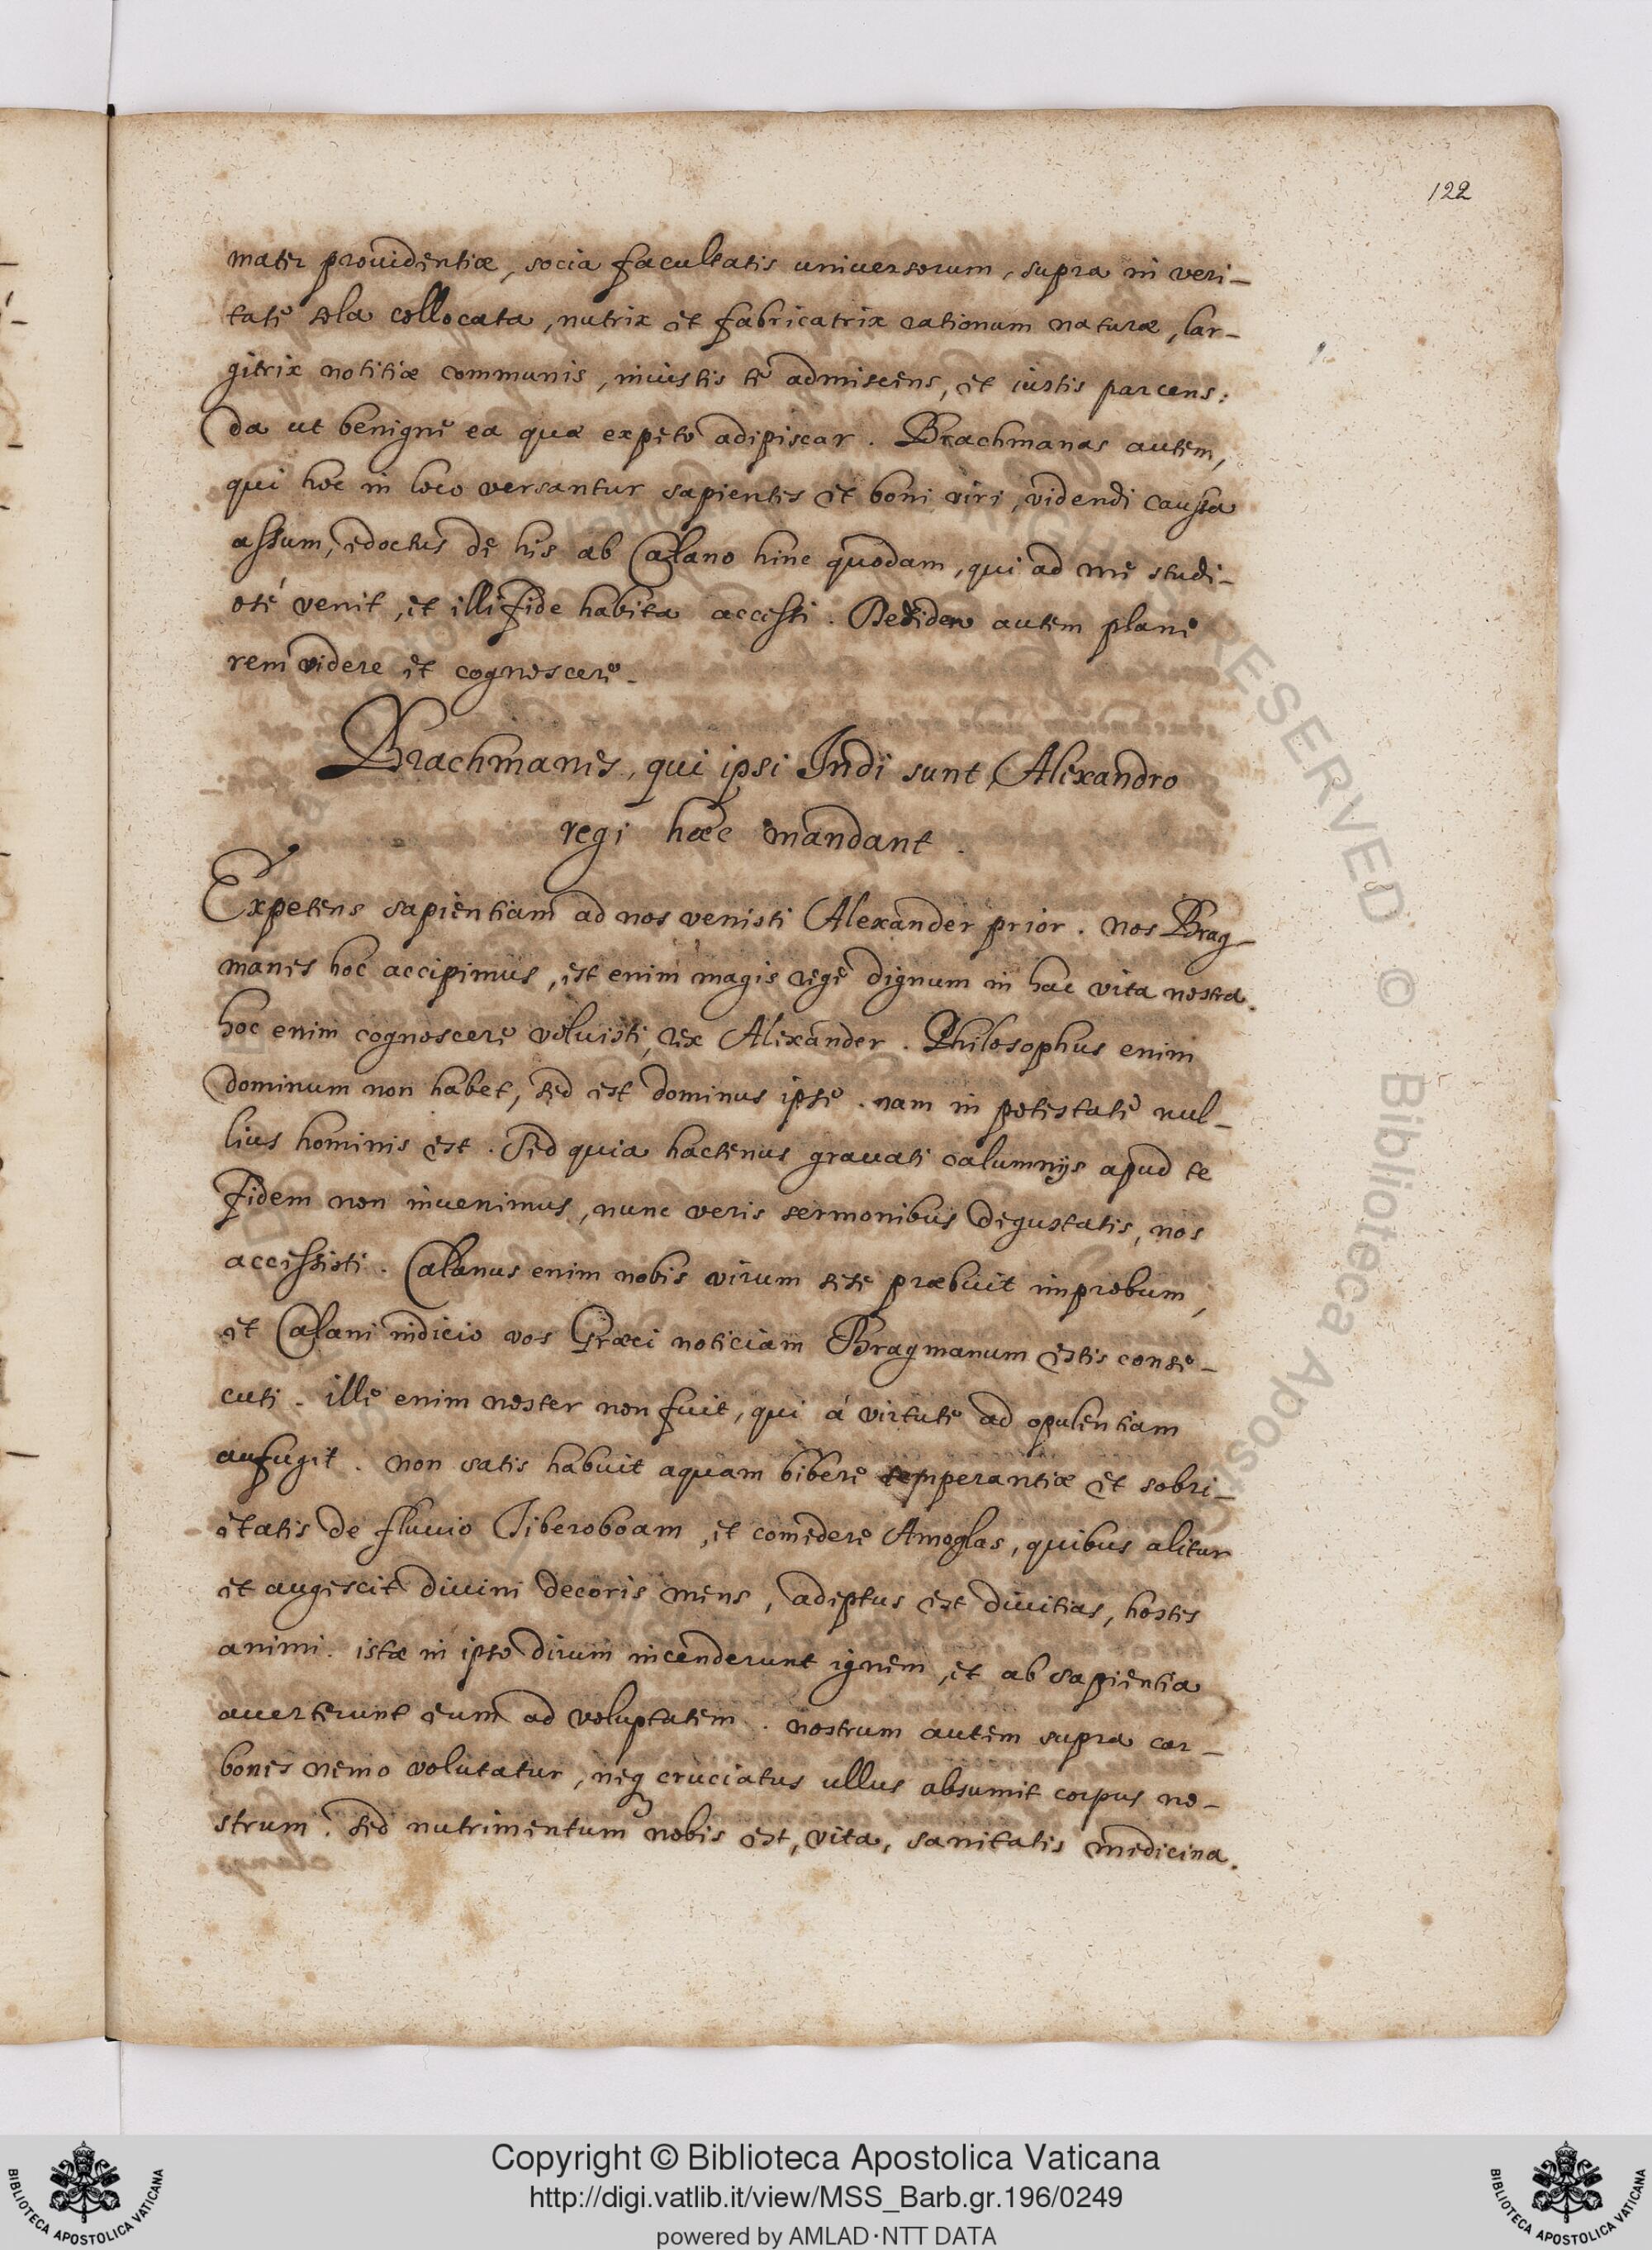 122
mater prouidentiæ, socia facultatis uniuersorum, supra in veri-
tate sola collocata, nutrix et fabricatrix rationum naturæ, lar-
gitrix notitiæ communis, iniustis te admiscens, et iustis parcens:
da ut benigne ea quæ expeto adipiscar. Brachmanas autem,
qui hoc in loco versantur sapientes et boni viri, videndi caussa
assum, edoctus de his ab Calano hinc quodam, qui ad me studi-
osé venit, et illi fide habita accessi. Desidero autem plane
rem videre et cognoscere.
Brachmanes, qui ipsi Indi sunt Alexandro
regi hæc mandant.
Expetens sapientiam ad nos venisti Alexander prior. nos Brag-
manes hoc accipimus, est enim magis rege dignum in hac vita nostra.
hoc enim cognoscere voluisti, rex Alexander. Philosophus enim
dominum non habet, sed est dominus ipse. nam in potestate nul-
lius hominis est. Sed quia hactenus grauati calumnijs apud te
fidem non inuenimus, nunc veris sermonibus degustatis, nos
accessisti. Calanus enim nobis virum sese præbuit improbum,
et Calani indicio vos Græci noticiam Bragmanum estis conse-
cuti. ille enim noster non fuit, qui á virtute ad opulentiam
aufugit. non satis habuit aquam bibere temperantiæ et sobri-
etatis de fluuio Tiberoboam, et comedere Amoglas, quibus alitur
et augescit diuini decoris mens, adeptus est diuitias, hostes
animi. istæ in ipso dirum incenderunt ignem, et ab sapientia
auerterunt eum ad voluptatem. nostrum autem supra car-
bones nemo volutatur, neq cruciatus ullus absumit corpus no-
strum. sed nutrimentum nobis est, vita, sanitatis medicina.
Copyright © Biblioteca Apostolica Vaticana
http://digi.vatlib.it/view/MSS_Barb.gr.196/0249
powered by AMLAD·NTT DATA
BIBLIOTECA APOSTOLICA VATICANA
BIBLIOTECA APOSTOLICA VATICANA